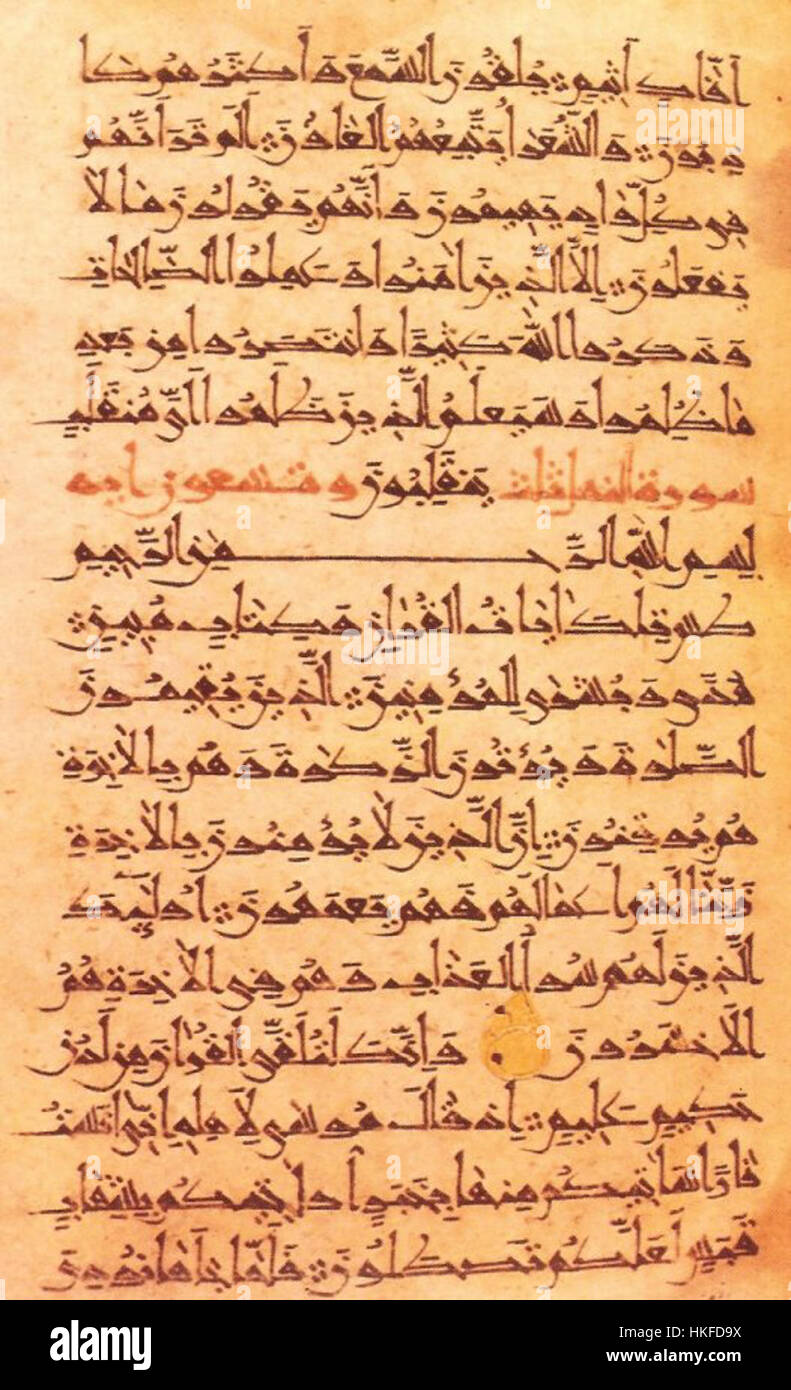 أَفَّاكٍ أَثِيمٍ يُلْقُونَ السَّمْعَ وَأَكْثَرُهُمْ كَا
ذِبُونَ وَالشُّعَرَاءُ يَتَّبِعُهُمُ الْغَاوُنَ أَلَمْ تَرَ أَنَّهُمْ
فِي كُلِّ وَادٍ يَهِيمُونَ وَأَنَّهُمْ يَقُولُونَ مَا لَا
يَفْعَلُونَ إِلَّا الَّذِينَ آمَنُوا وَعَمِلُوا الصَّالِحَاتِ
وَذَكَرُوا اللَّهَ كَثِيرًا وَانْتَصَرُوا مِنْ بَعْدِ
مَا ظُلِمُوا وَسَيَعْلَمُ الَّذِينَ ظَلَمُوا أَيَّ مُنْقَلَبٍ
سورة النمل ثلث يَنْقَلِبُونَ وتسعون آية
بِسْمِ اللَّهِ الرَّحْمَنِ الرَّحِيمِ
طس تِلْكَ آيَاتُ الْقُرْآنِ وَكِتَابٍ مُبِينٍ
هُدًى وَبُشْرَى لِلْمُؤْمِنِينَ الَّذِينَ يُقِيمُونَ
الصَّلَوةَ وَيُؤْتُونَ الزَّكَوةَ وَهُمْ بِالْآخِرَةِ
هُمْ يُوقِنُونَ إِنَّ الَّذِينَ لَا يُؤْمِنُونَ بِالْآخِرَةِ
زَيَّنَّا لَهُمْ أَعْمَالَهُمْ فَهُمْ يَعْمَهُونَ أُولَئِكَ
الَّذِينَ لَهُمْ سُوءُ الْعَذَابِ وَهُمْ فِي الْآخِرَةِ هُمُ
الْأَخْسَرُونَ وَإِنَّكَ لَتُلَقَّى الْقُرْآنَ مِنْ لَدُنْ
حَكِيمٍ عَلِيمٍ إِذْ قَالَ مُوسَى لِأَهْلِهِ إِنِّي آنَسْتُ
نَارًا سَآتِيكُمْ مِنْهَا بِخَبَرٍ أَوْ آتِيكُمْ بِشِهَابٍ
قَبَسٍ لَعَلَّكُمْ تَصْطَلُونَ فَلَمَّا جَاءَهَا نُودِيَ
alamy
Image ID: HKFD9X
www.alamy.com